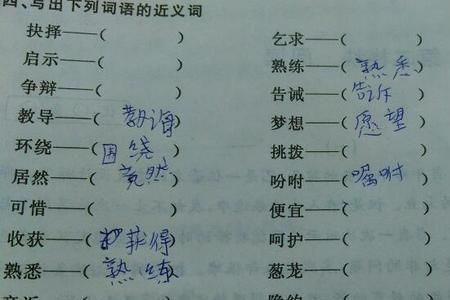 四、写出下列词语的近义词
抉择——( ) 乞求——( )
启示——( ) 熟练——(熟悉)
争辩——( ) 告诫——(告诉)
教导——(教诲) 梦想——(愿望)
环绕——(围绕) 挑拨——( )
居然——(竟然) 吩咐——(嘱咐)
可惜——( ) 便宜——( )
收获——(获得) 呵护——( )
熟悉——(熟练) 葱茏——( )